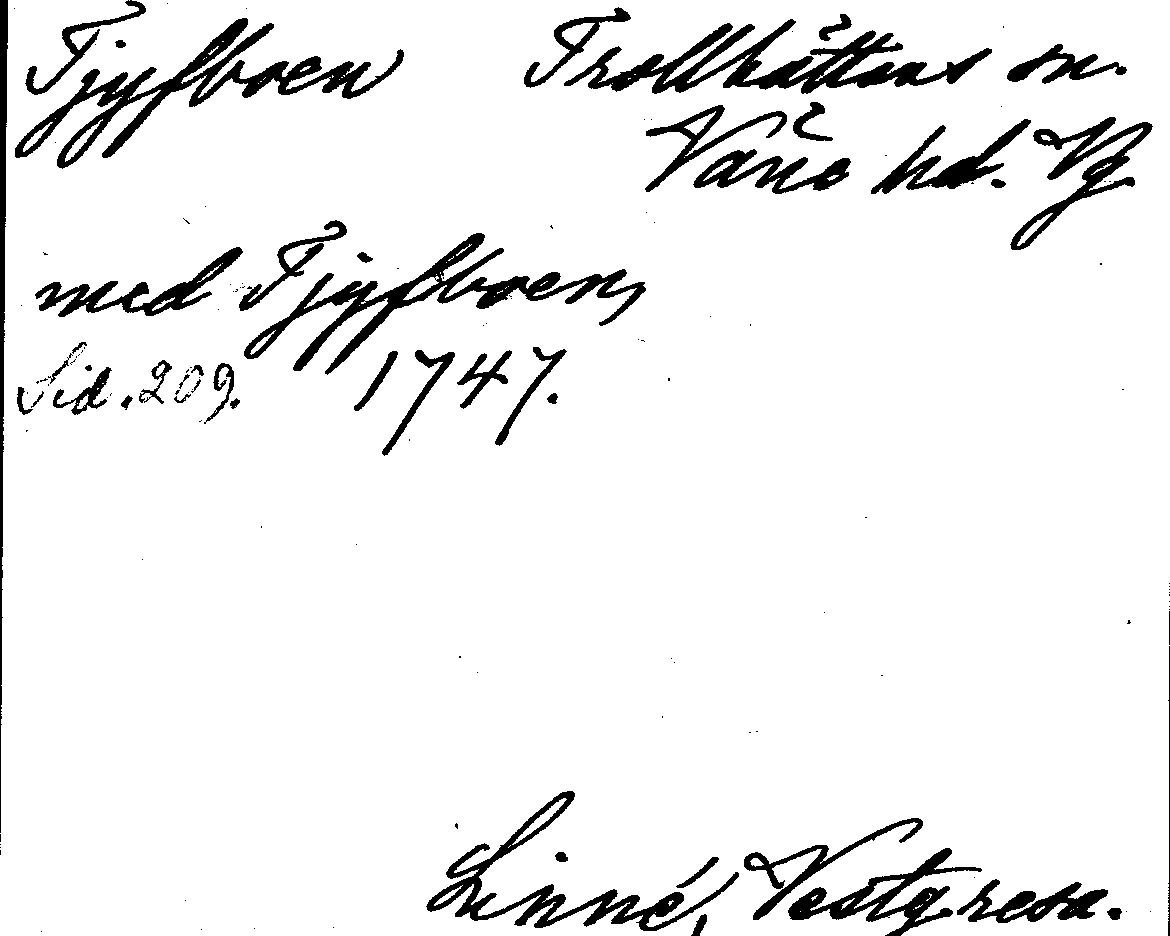 Tjyfboen Trollhättans sn.
Väne hd. Vg.
med Tjyfboen,
Sid. 209. 1747.
Linné, Vestg. resa.